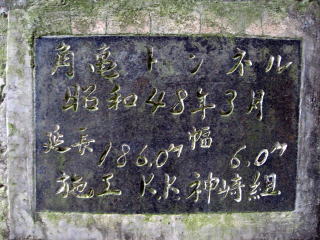 角亀トンネル
昭和48年3月
延長186.0m 幅6.0m
施工 K.K神崎組